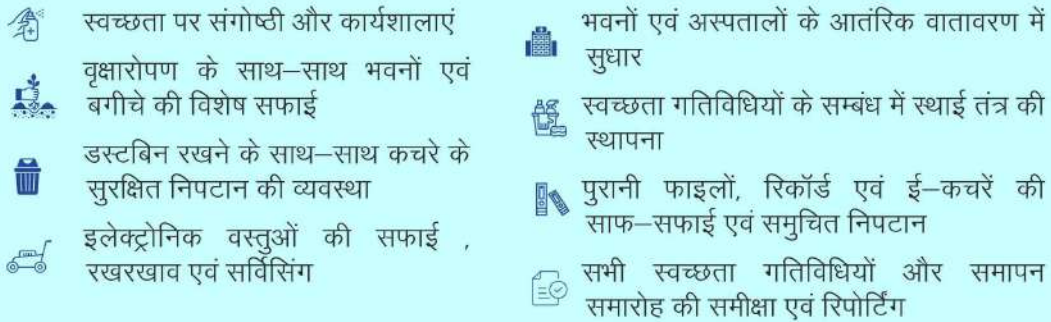 स्वच्छता पर संगोष्ठी और कार्यशालाएं
वृक्षारोपण के साथ–साथ भवनों एवं
बगीचे की विशेष सफाई
डस्टबिन रखने के साथ–साथ कचरे के
सुरक्षित निपटान की व्यवस्था
इलेक्ट्रोनिक वस्तुओं की सफाई ,
रखरखाव एवं सर्विसिंग
भवनों एवं अस्पतालों के आतंरिक वातावरण में
सुधार
स्वच्छता गतिविधियों के सम्बंध में स्थाई तंत्र की
स्थापना
पुरानी फाइलों, रिकॉर्ड एवं ई–कचरें की
साफ–सफाई एवं समुचित निपटान
सभी स्वच्छता गतिविधियों और समापन
समारोह की समीक्षा एवं रिपोर्टिंग